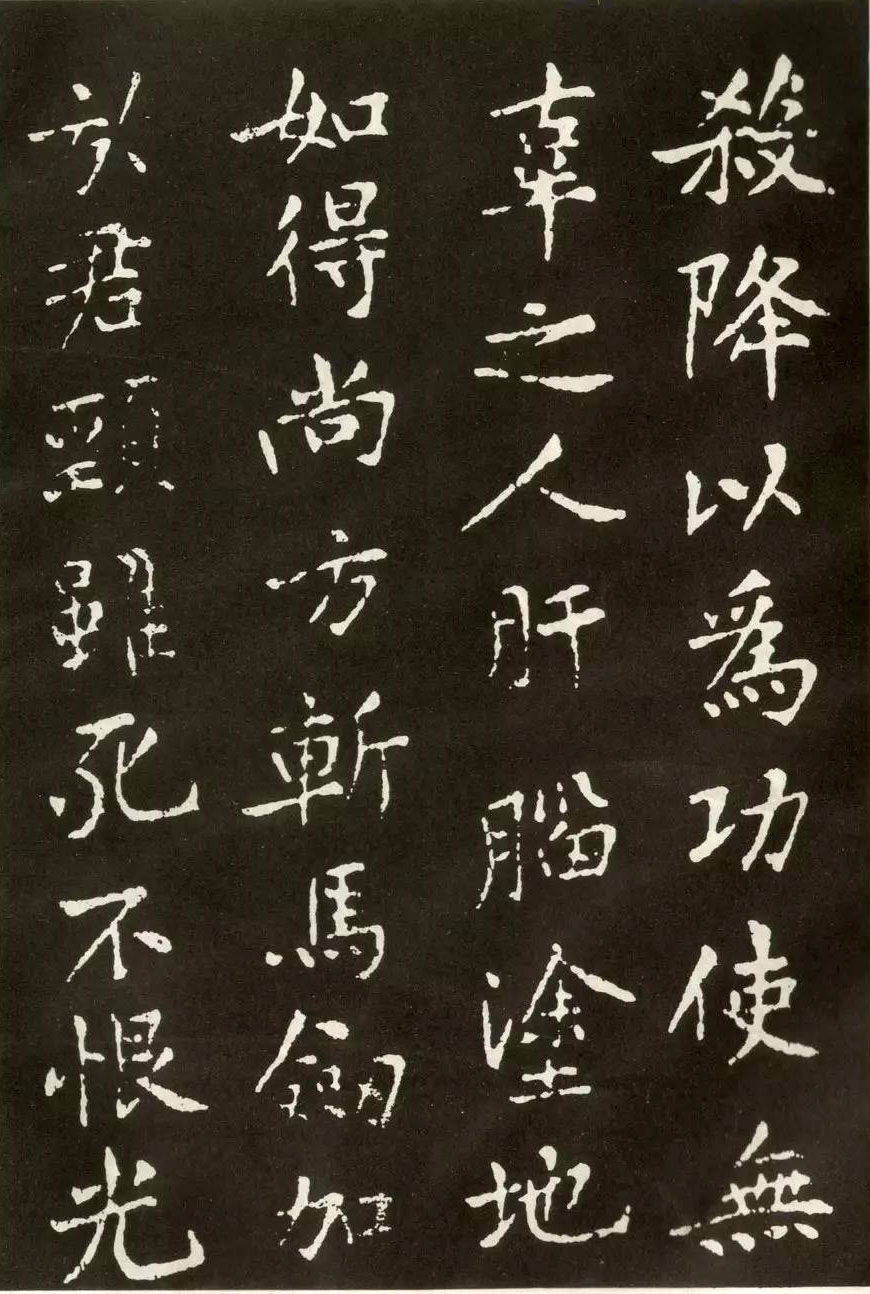 殺降以為功使無
辜之人肝腦塗地
如得尚方斬馬劒加
於君頸雖死不恨光